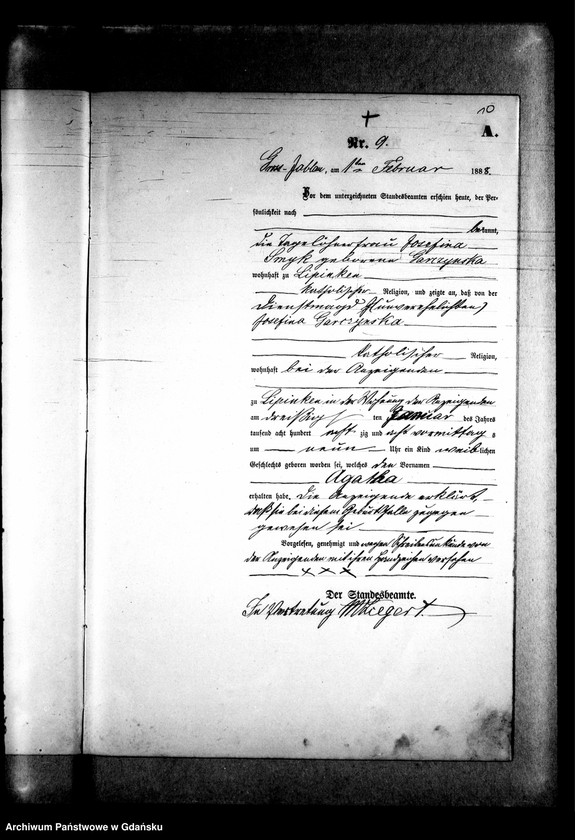 10
A.
Nr. 9.
Gross-Jablau, am 1ten Februar 1888.
Vor dem unterzeichneten Standesbeamten erschien heute, der Per-
sönlichkeit nach
bekannt,
die Tagelöhnerfrau Josefina
Smyk geborene Garczynska
wohnhaft zu Lipinken
katholischer Religion, und zeigte an, daß von der
Dienstmagd (unverehelichten)
Josefina Garczynska
katholischer Religion,
wohnhaft bei der Anzeigenden
zu Lipinken in der Wohnung der Anzeigenden
am dreißig ten Januar des Jahres
tausend acht hundert acht zig und acht vormittag s
um neun Uhr ein Kind weiblichen
Geschlechts geboren worden sei, welches den Vornamen
Agatha
erhalten habe. Die Anzeigende erklärt,
daß sie bei diesem Geburtsfalle zugegen
gewesen sei
Vorgelesen, genehmigt und wegen Schreibensunkunde von
der Anzeigenden mit ihren Handzeichen versehen
+++
Der Standesbeamte.
In Vertretung
Archiwum Państwowe w Gdańsku